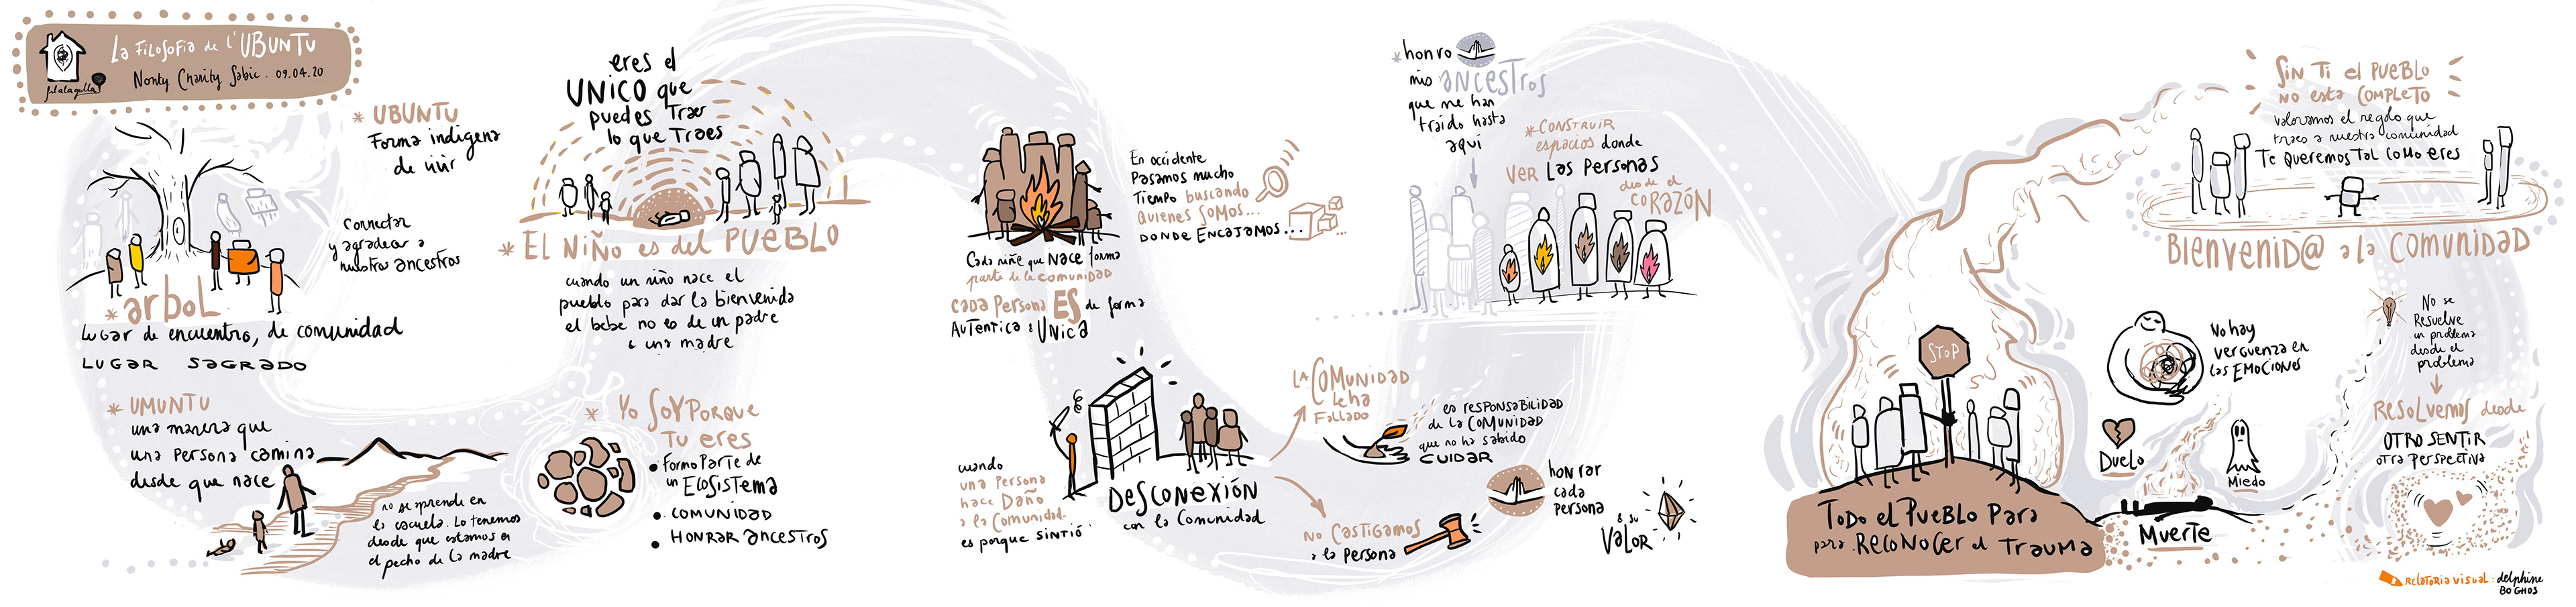 La Filosofia de l'UBUNTU
Nonty Charity Sabic . 09.04.20
filalagulla
* UBUNTU
Forma indigena
de vivir
Connectar
y agradecer a
nuestros ancestros
* arbol
Lugar de encuentro, de comunidad
LUGAR SAGRADO
* UMUNTU
una manera que
una persona camina
desde que nace
no se aprende en
la escuela. Lo tenemos
desde que estamos en
el pecho de la madre
eres el
UNICO que
puedes Traer
lo que Traes
* EL NIÑO es del PUEBLO
cuando un niño nace el
pueblo para dar la bienvenida
el bebe no es de un padre
o una madre
* Yo SOY PORQUE
TU eres
• Formo Parte de
un ECOSISTEMA
• COMUNIDAD
• HONRAR ANCESTROS
En occidente
Pasamos mucho
Tiempo buscando
Quienes somos...
DONDE ENCAJAMOS...
Cada niñe que NACE forma
parte de la comunidad
CADA Persona ES de forma
AUTENTICA & UNICA
cuando
una Persona
hace Daño
a la comunidad
es porque sintió
DESCONEXIÓN
con la Comunidad
LA COMUNIDAD
le ha
FALLADO
es RESPONSABILIDAD
de la COMUNIDAD
que no ha sabido
CUIDAR
NO CASTIGAMOS
a la Persona
honrar
cada
persona
& su
VALOR
* honro
mis ANCESTROS
que me han
traído hasta
aquí
* CONSTRUIR
espacios donde
VER Las Personas
desde el
CORAZÓN
STOP
TODO el PUEBLO Para
para RECONOCER el TRAUMA
SIN TI el PUEBLO
NO esta COMPLETO
valoramos el regalo que
traes a nuestra comunidad
Te Queremos TAL COMO eres
BIENVENID@ a la COMUNIDAD
No hay
verguenza en
las EMOCIONES
Duelo
Miedo
Muerte
No se
Resuelve
un problema
desde el
problema
RESOLVEMOS desde
OTRO SENTIR
otra PERSPECTIVA
RELATORIA VISUAL : delphine
BOGHOS